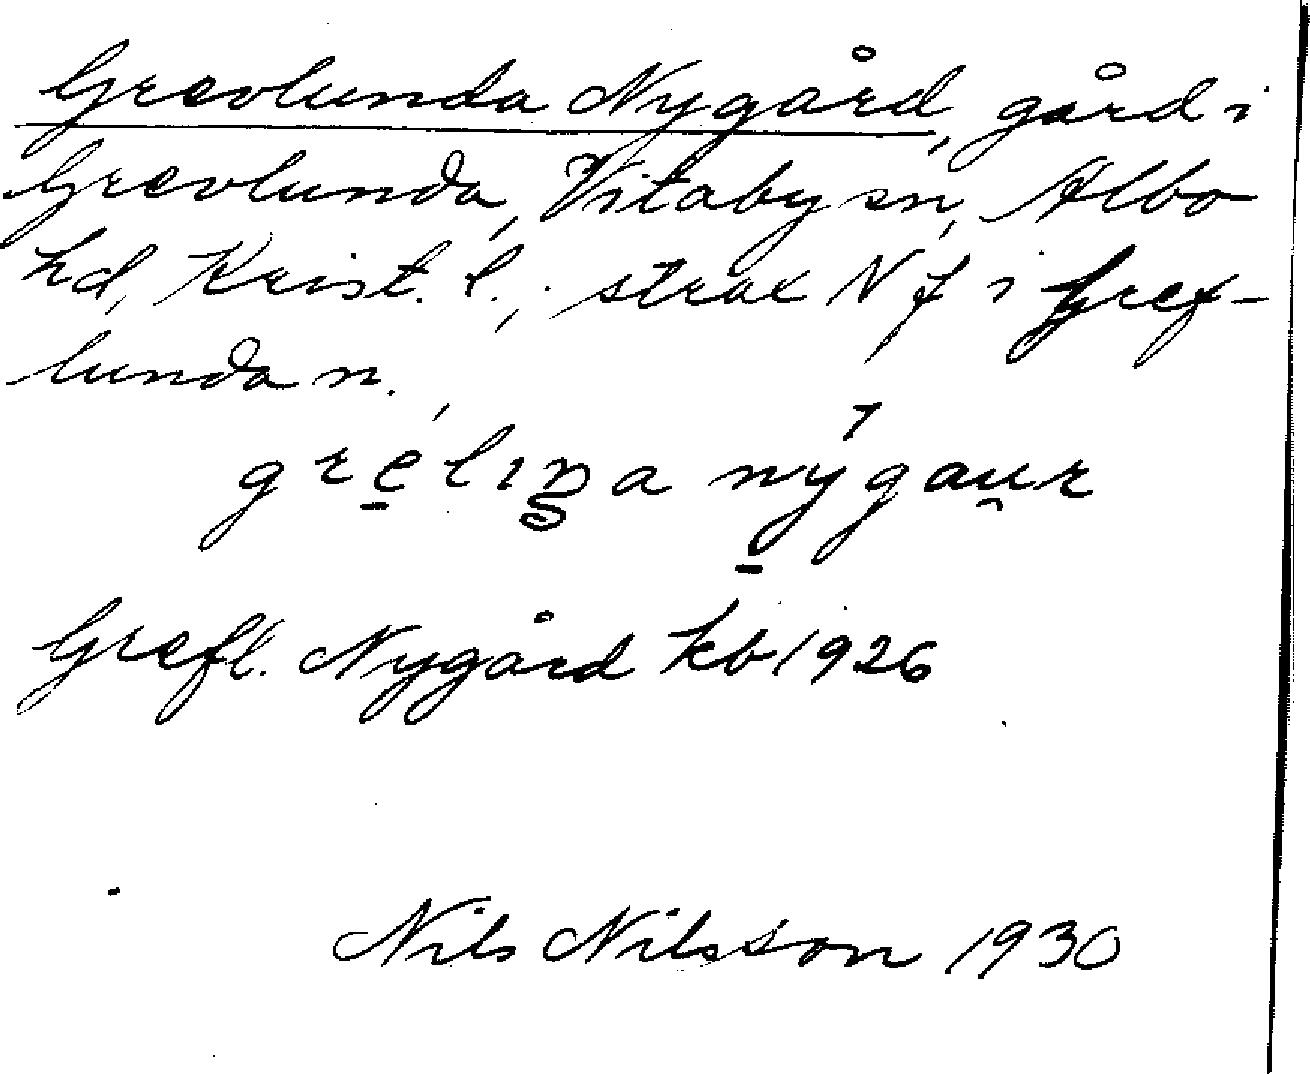 Grevlunda Nygård, gård i
Grevlunda, Vitaby sn, Albo
hd, Krist. l.; strax N f i Gref-
lunda n.
gre̱lıṉa ný̱gau̯r
Grefl. Nygård kb 1926
Nils Nilsson 1930